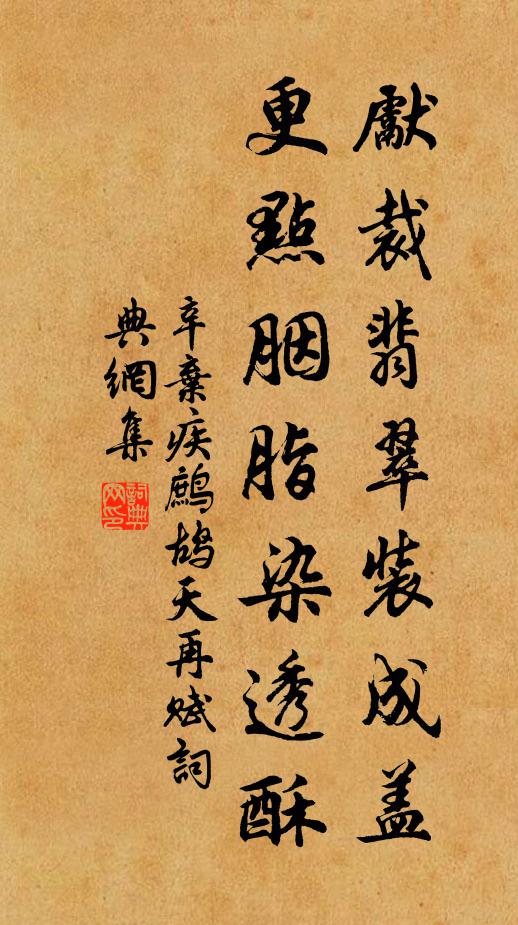 獻裁翡翠裝成盖
更點胭脂染透酥
辛棄疾鷓鴣天再賦詞
典網集
詞典
网印